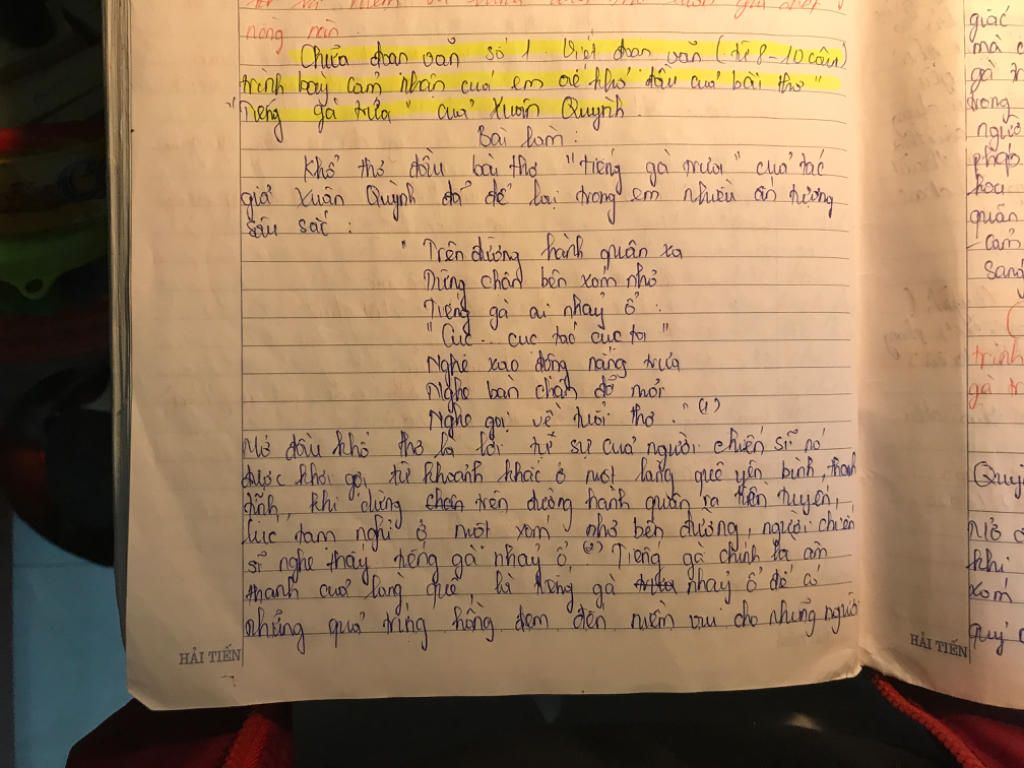 nồng nàn.
Chữa đoạn văn số 1 Viết đoạn văn (từ 8-10 câu)
trình bày cảm nhận của em về khổ đầu của bài thơ "
"Tiếng gà trưa" của Xuân Quỳnh.
Bài làm:
Khổ thơ đầu bài thơ "tiếng gà trưa" của tác
giả Xuân Quỳnh đã để lại trong em nhiều ấn tượng
sâu sắc:
" Trên đường hành quân xa
Dừng chân bên xóm nhỏ
Tiếng gà ai nhảy ổ:
"Cục... cục tác cục ta"
Nghe xao động nắng trưa
Nghe bàn chân đỡ mỏi
Nghe gọi về tuổi thơ." (1)
Mở đầu khổ thơ là lời tự sự của người chiến sĩ nó
được khơi gợi từ khoảnh khắc ở một làng quê yên bình, thanh
tĩnh, khi dừng chân trên đường hành quân ra tiền tuyến,
lúc tạm nghỉ ở một xóm nhỏ bên đường, người chiến
sĩ nghe thấy tiếng gà nhảy ổ. (2) Tiếng gà chính là âm
thanh của làng quê, là tiếng gà trưa nhảy ổ để có
những quả trứng hồng đem đến niềm vui cho những người
HẢI TIẾN
HẢI TIẾN
giác
gà tr
trong
người
pháp
hoa
quân
-cảm
trình
gà tr
Quỳn
Mở đ
khi
xóm